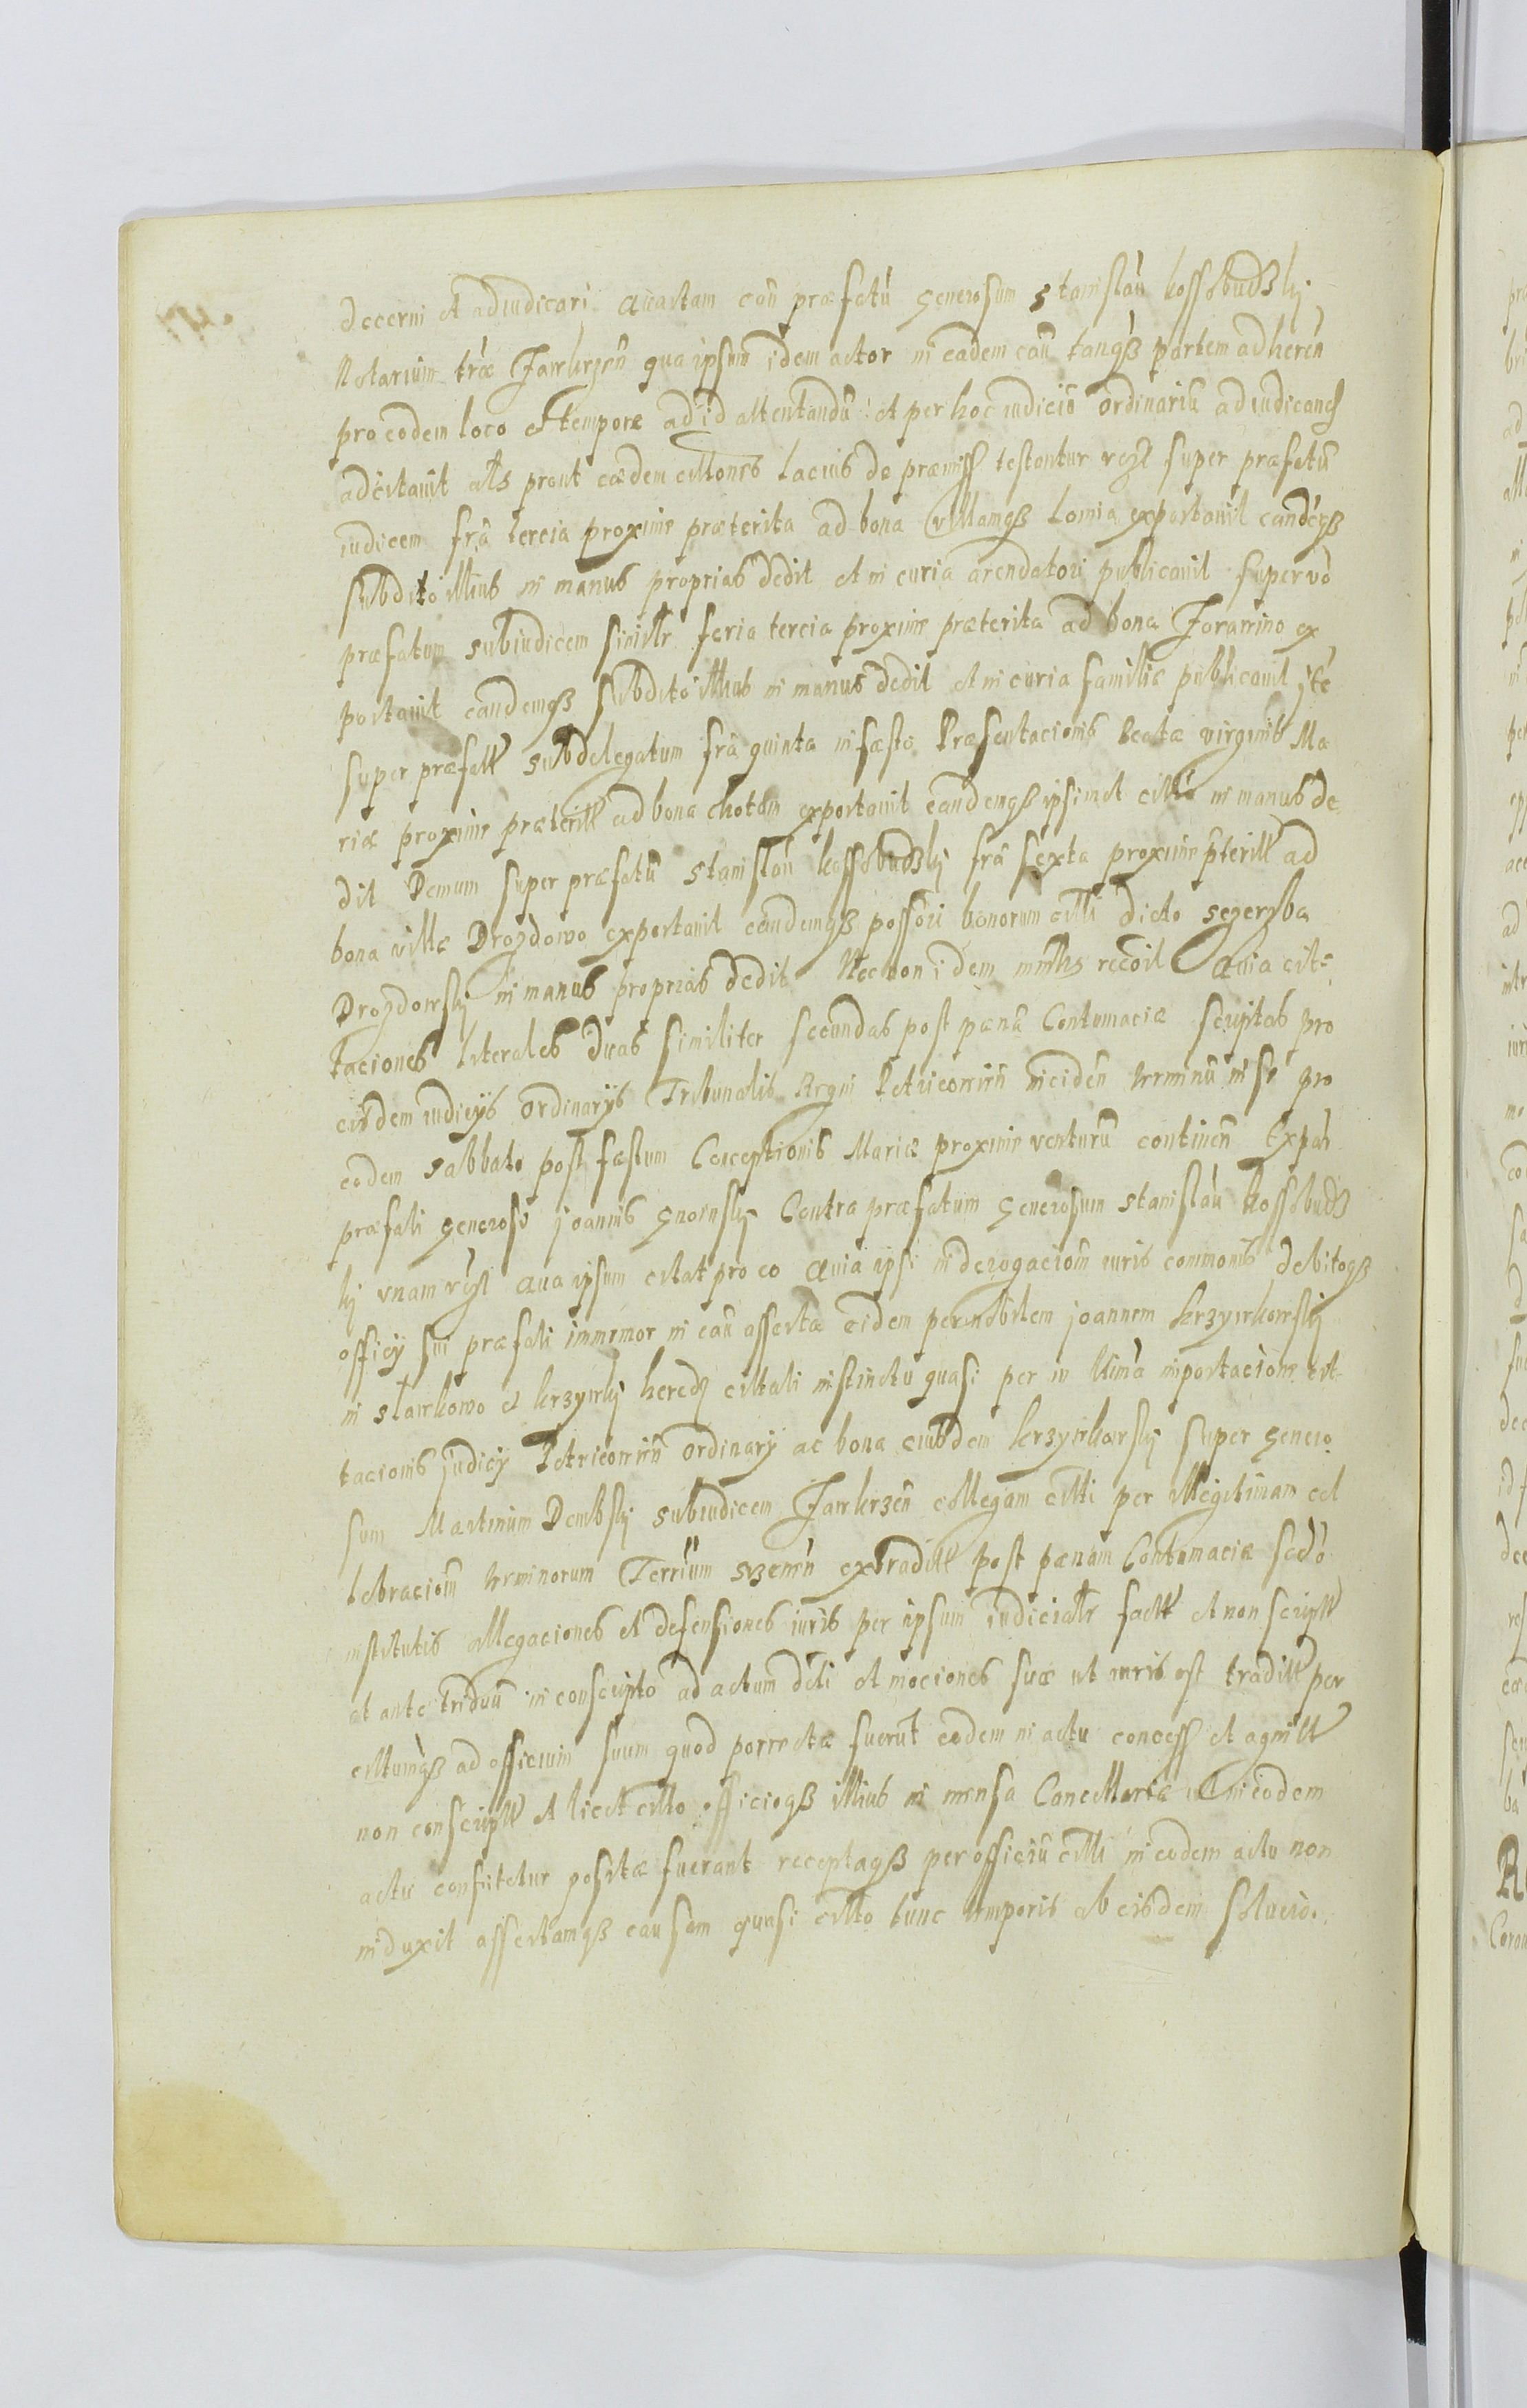 decerni et adiudicari Quartam cau præfatũ Generosum Stanislaũ kossobudzky
Notarium træ Zawkrzeñ qua ipsum idem actor in eadem cau tanqz partem adheren
pro eodem loco et tempore ad id attentandũ et per hoc iudiciũ ordinariũ adiudicand
adcitauit als prout eædem cittones lacius de præmiss testantur vcz super præfatũ
iudicem frã tercia proxime præterita ad bona villamqz Lomia exportauit eandeqz
subdito illius in manus proprias dedit et in curia arendatori publicauit super vo
præfatum subiudicem similr feria tercia proxime præterita ad bona ex
portauit eandemqz subdito illius in manus dedit et in curia familie publicauit ite
super præfatt subdelegatum frã quinta in fæsto Præsentacionis Beatæ virginis Ma
riæ proxime præteritt ad bona chotum exportauit eandemqz ipsimet citto in manus de
dit Demum super præfatũ Stanislaũ kossobudzky frã sexta proxime pteritt ad
bona villæ Drozdowo exportauit eandemqz possori bonorum citti dicto sczerzba
Drozdowsky in manus proprias dedit Nec non idem mnrlis recoit Quia cit-
taciones literales duas similiter secundas post pænã Contumaciæ scriptas pro
eisdem iudicys ordinarys Tribunalis Regni Petricouien inciden terminũ in se pro
eodem sabbato post fæstum Conceptionis Mariæ proxime venturũ continen Ex pte
præfati Generosi joannis Gnoinsky Contra præfatum Generosum Stanislaũ kossobudz
ky vnam vcz qua ipsum citat pro eo Quia ipse in derogaciom iuris communis debitoqz
officy sui præfati immemor in cau assertæ eidem per nobilem joannem krzywkowsky
in slawkowo et krzywky hered cittati instinctu quasi per in importaciom cit-
tacionis judicy Petricouien ordinary ac bona eiusdem krzywkowsky super Genero
sum Martinum Dembsky subiudicem Zawkrzen collegam citti per illegitimam cel
lebraciom terminorum Terrium szrenen extraditt post pænam Contumaciæ
institutis allegaciones et defensiones iuris per ipsum iudicialr factt et non scriptt
et ante triduũ in conscripto ad actum dcti et mociones suæ ut iuris est traditt per
cittumqz ad officium suum quod porrectæ fuerũt eodem in actu concess et agnitt
non conscriptt et licet citto officioqz illius in mensa Cancellariæ ut in eodem
actu confitetur positæ fuerant receptaqz per officiũ citti in eodem actu non
induxit assertamqz causam quasi citto tunc temporis ab eisdem solucio.